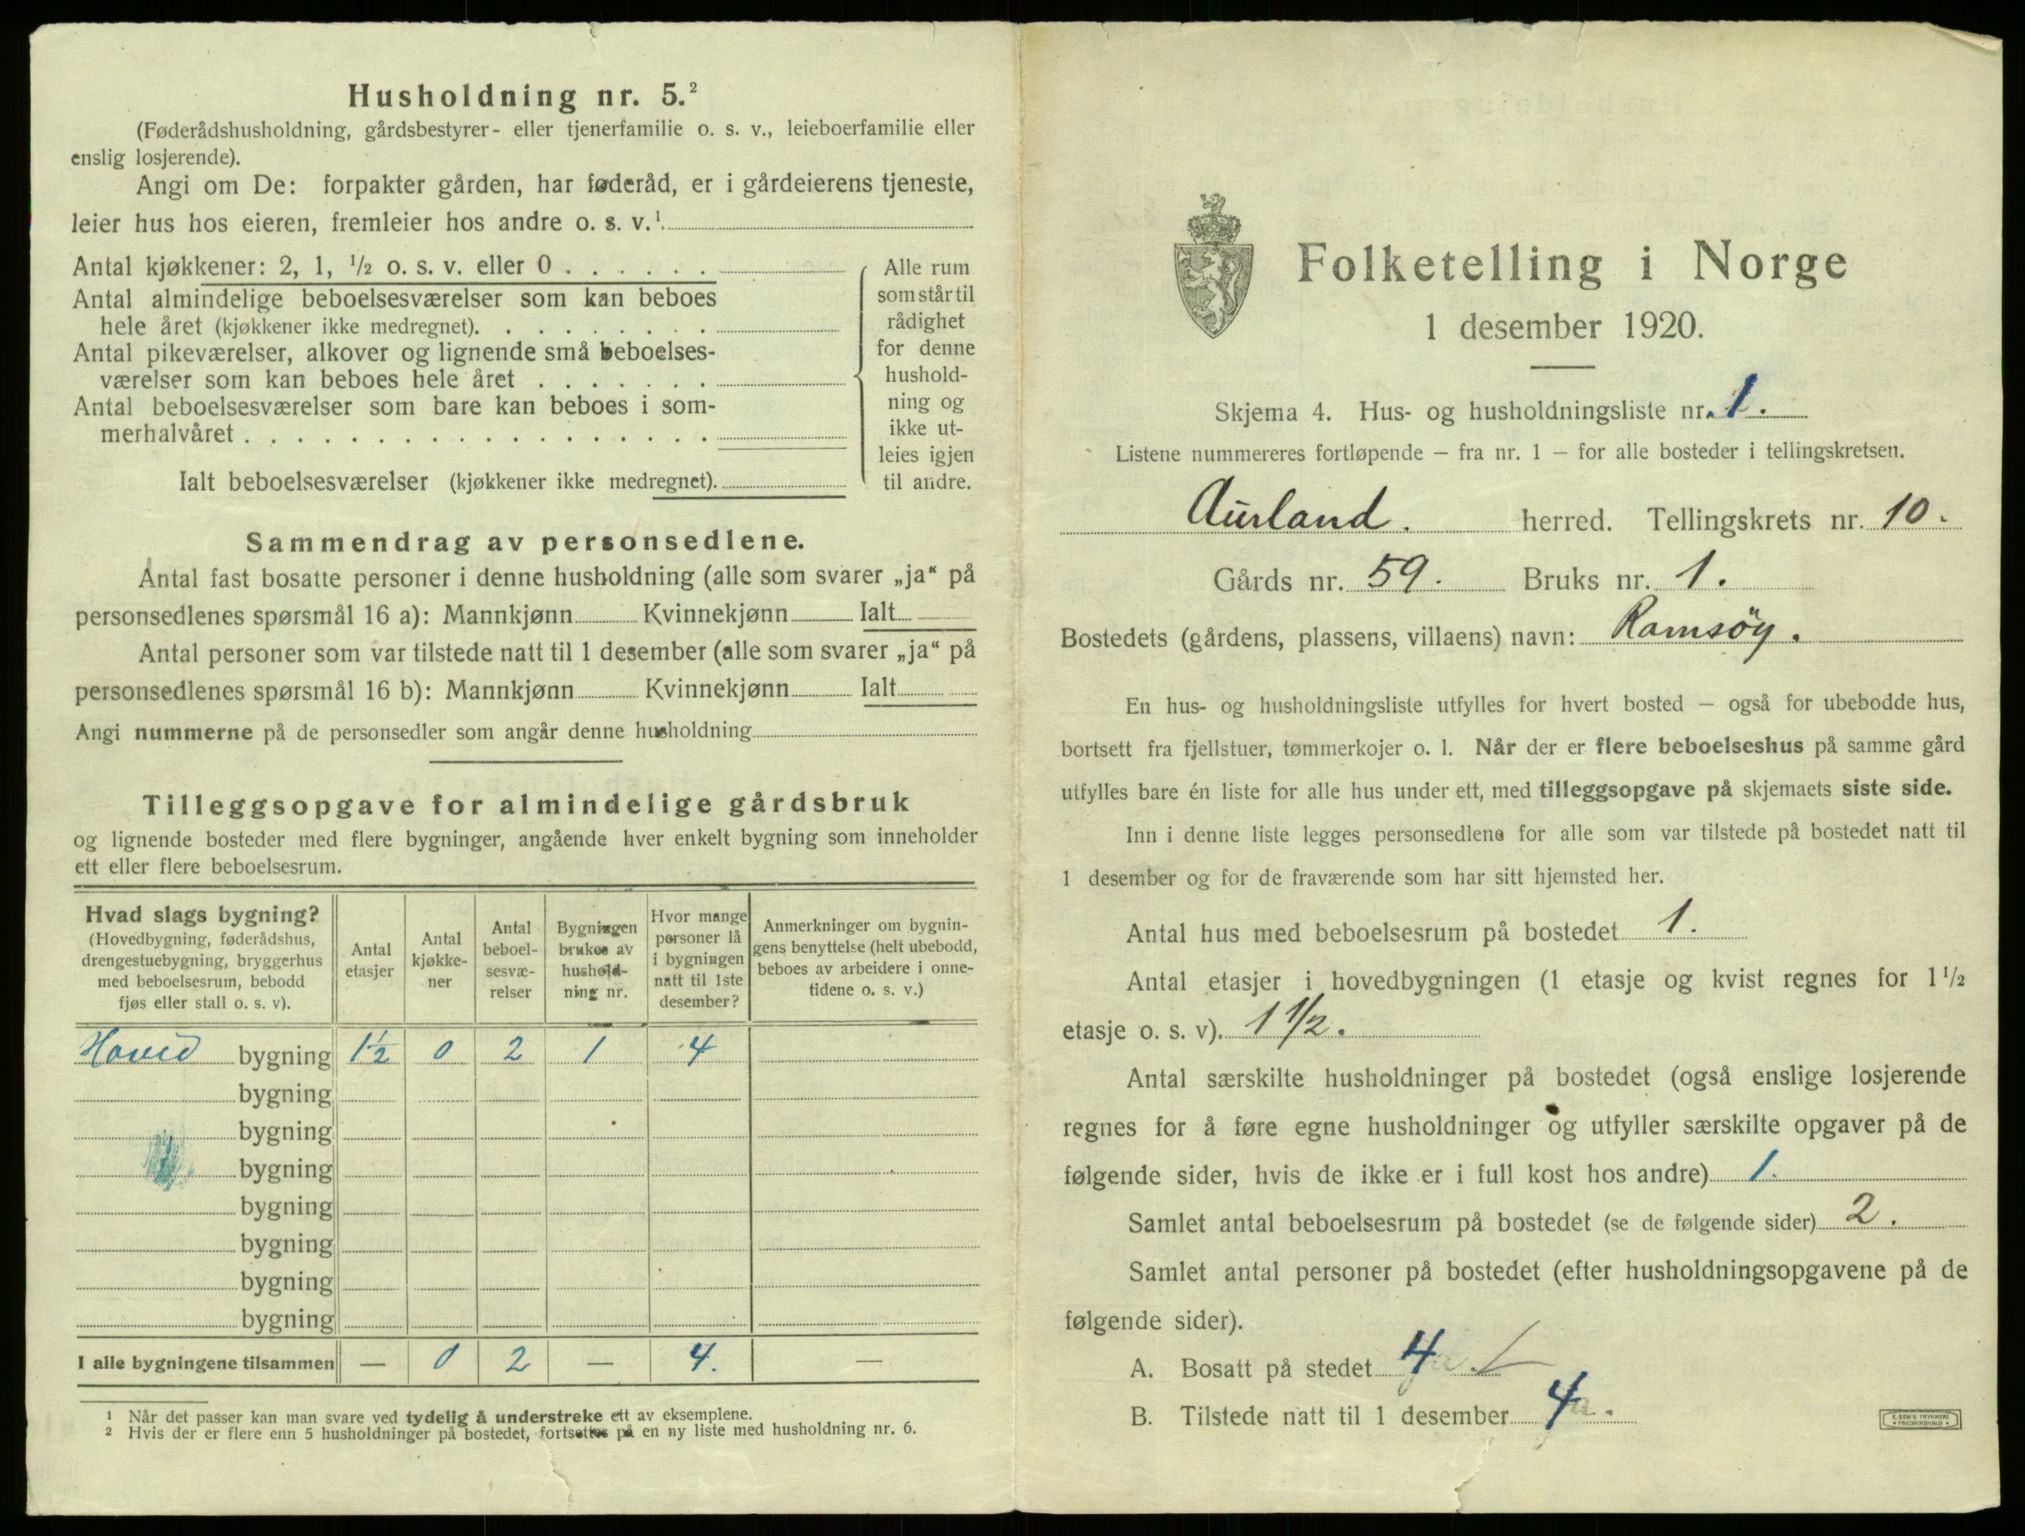 Husholdning nr. 5.²
(Føderådshusholdning, gårdsbestyrer- eller tjenerfamilie o. s. v., leieboerfamilie eller
enslig losjerende).
Angi om De: forpakter gården, har føderåd, er i gårdeierens tjeneste,
leier hus hos eieren, fremleier hos andre o. s. v.¹
Antal kjøkkener: 2, 1, ½ o. s. v. eller 0
Antal almindelige beboelsesværelser som kan beboes
hele året (kjøkkener ikke medregnet).
Antal pikeværelser, alkover og lignende små beboelses-
værelser som kan beboes hele året
Antal beboelsesværelser som bare kan beboes i som-
merhalvåret
Ialt beboelsesværelser (kjøkkener ikke medregnet).
Alle rum
som står til
rådighet
for denne
hushold-
ning og
ikke ut-
leies igjen
til andre.
Sammendrag av personsedlene.
Antal fast bosatte personer i denne husholdning (alle som svarer „ja“ på
personsedlenes spørsmål 16 a): Mannkjønn Kvinnekjønn Ialt
Antal personer som var tilstede natt til 1 desember (alle som svarer „ja“ på
personsedlenes spørsmål 16 b): Mannkjønn Kvinnekjønn Ialt
Angi nummerne på de personsedler som angår denne husholdning
Tilleggsopgave for almindelige gårdsbruk
og lignende bosteder med flere bygninger, angående hver enkelt bygning som inneholder
ett eller flere beboelsesrum.
Hvad slags bygning?
(Hovedbygning, føderådshus,
drengestuebygning, bryggerhus
med beboelsesrum, bebodd
fjøs eller stall o. s. v).
Antal
etasjer
Antal
kjøkke-
ner
Antal
beboel-
sesvæ-
relser
Bygningen
brukes av
hushold-
ning nr.
Hvor mange
personer lå
i bygningen
natt til 1ste
desember?
Anmerkninger om bygnin-
gens benyttelse (helt ubebodd,
beboes av arbeidere i onne-
tidene o. s. v.)
Hoved bygning 1½ 0 2 1 4
bygning
bygning
bygning
bygning
bygning
bygning
bygning
I alle bygningene tilsammen — 0 2 — 4. —
¹ Når det passer kan man svare ved tydelig å understreke ett av eksemplene.
² Hvis der er flere enn 5 husholdninger på bostedet, fortsettes på en ny liste med husholdning nr. 6.
Folketelling i Norge
1 desember 1920.
Skjema 4. Hus- og husholdningsliste nr. 1.
Listene nummereres fortløpende — fra nr. 1 — for alle bosteder i tellingskretsen.
Aurland. herred. Tellingskrets nr. 10.
Gårds nr. 59. Bruks nr. 1.
Bostedets (gårdens, plassens, villaens) navn: Ramsöy.
En hus- og husholdningsliste utfylles for hvert bosted — også for ubebodde hus,
bortsett fra fjellstuer, tømmerkojer o. l. Når der er flere beboelseshus på samme gård
utfylles bare én liste for alle hus under ett, med tilleggsopgave på skjemaets siste side.
Inn i denne liste legges personsedlene for alle som var tilstede på bostedet natt til
1 desember og for de fraværende som har sitt hjemsted her.
Antal hus med beboelsesrum på bostedet 1.
Antal etasjer i hovedbygningen (1 etasje og kvist regnes for 1½
etasje o. s. v). 1½.
Antal særskilte husholdninger på bostedet (også enslige losjerende
regnes for å føre egne husholdninger og utfyller særskilte opgaver på de
følgende sider, hvis de ikke er i full kost hos andre) 1.
Samlet antal beboelsesrum på bostedet (se de følgende sider) 2.
Samlet antal personer på bostedet (efter husholdningsopgavene på de
følgende sider).
A. Bosatt på stedet 4
B. Tilstede natt til 1 desember 4
E. SEM'S TRYKKERI
FREDRIKSHALD